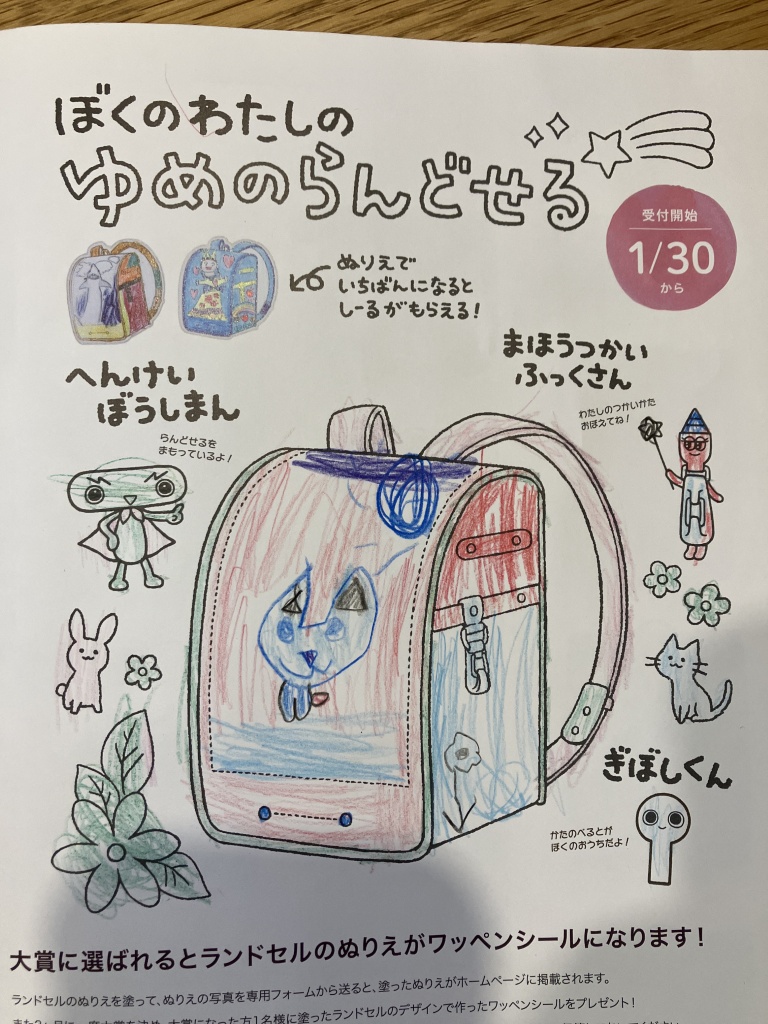 ぼくのわたしの
ゆめのらんどせる
受付開始
1/30
から
ぬりえで
いちばんになると
しーるがもらえる!
へんけい
ぼうしまん
らんどせるを
まもっているよ!
まほうつかい
ふっくさん
わたしのつかいかた
おぼえてね!
ぎぼしくん
かたのべるとが
ぼくのおうちだよ!
大賞に選ばれるとランドセルのぬりえがワッペンシールになります!
ランドセルのぬりえを塗って、ぬりえの写真を専用フォームから送ると、塗ったぬりえがホームページに掲載されます。
大賞になった方1名様に塗ったランドセルのデザインで作ったワッペンシールをプレゼント!